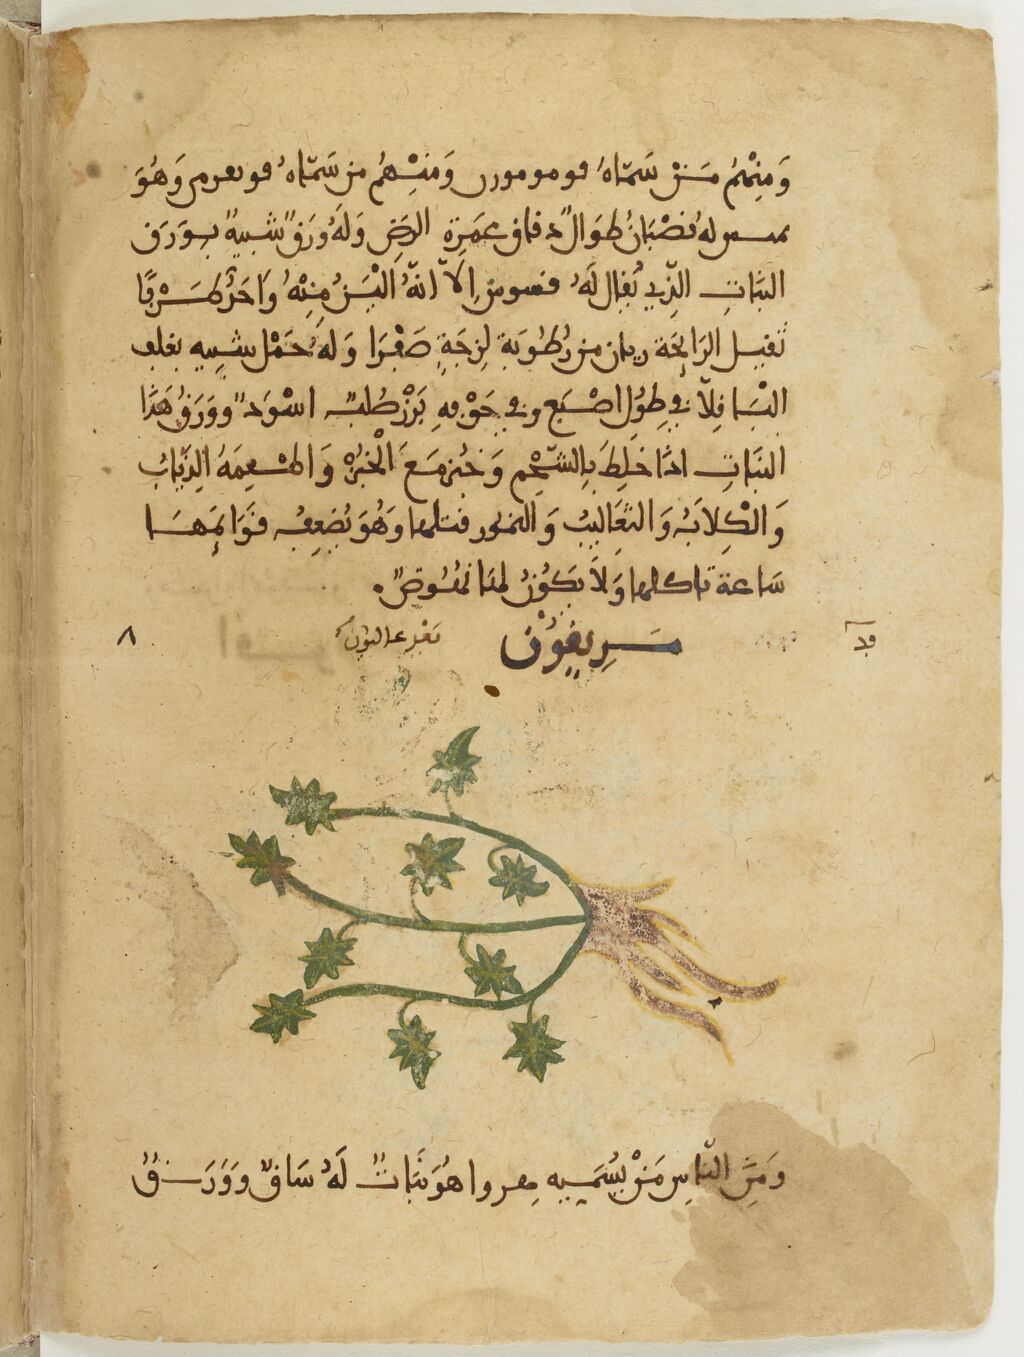 وَمِنْهُمْ مَنْ سَمَّاهُ فومومورں وَمِنْهُمْ من سَمَّاهُ وَهُوَ
له قُضْبَانٌ طِوَالٌ دقاق عَسِرَةِ الرضِ وَلَهُ وَرَقٌ شَبِيهٌ بِوَرَقِ
النَّبَاتِ الَّذِي يُقَال لَهُ قسوس إِلَّا أنَّهُ أَلْيَنُ مِنْهُ وَاحَدُّ طَرْفًا
ثقيل الرَّائِحَة ريان من رُطُوبَة لزِجَةٍ صَفْرَا وَلَهُ حَمْل شَبِيه بغلف
البَاقِلَّا فِي طُول اصْبَع وفي جَوْفِهِ بَزْر صُلْبٌ اسْوَدُ وَوَرَقُ هَذَا
النَّبَاتِ اذا خُلِطَ بِالشَّحْمِ وَخُبِزَ مَعَ الْخُبْزِ وَاطْعِمَهُ الذِّيَابُ
وَالْكِلَابُ وَالثَّعَالِبُ وَالنمور قتلها وَهُوَ يُضعِفُ قَوَايِمَهَا
سَاعة تاكلها وَلَا يَكُونُ لها نُهُوضٌ.
تقدم عَالنون
وَمِنَ النَّاسِ مَنْ يُسَمِّيه هُوَ نَبَاتٌ لَهُ سَاقٌ وَوَرَقٌ